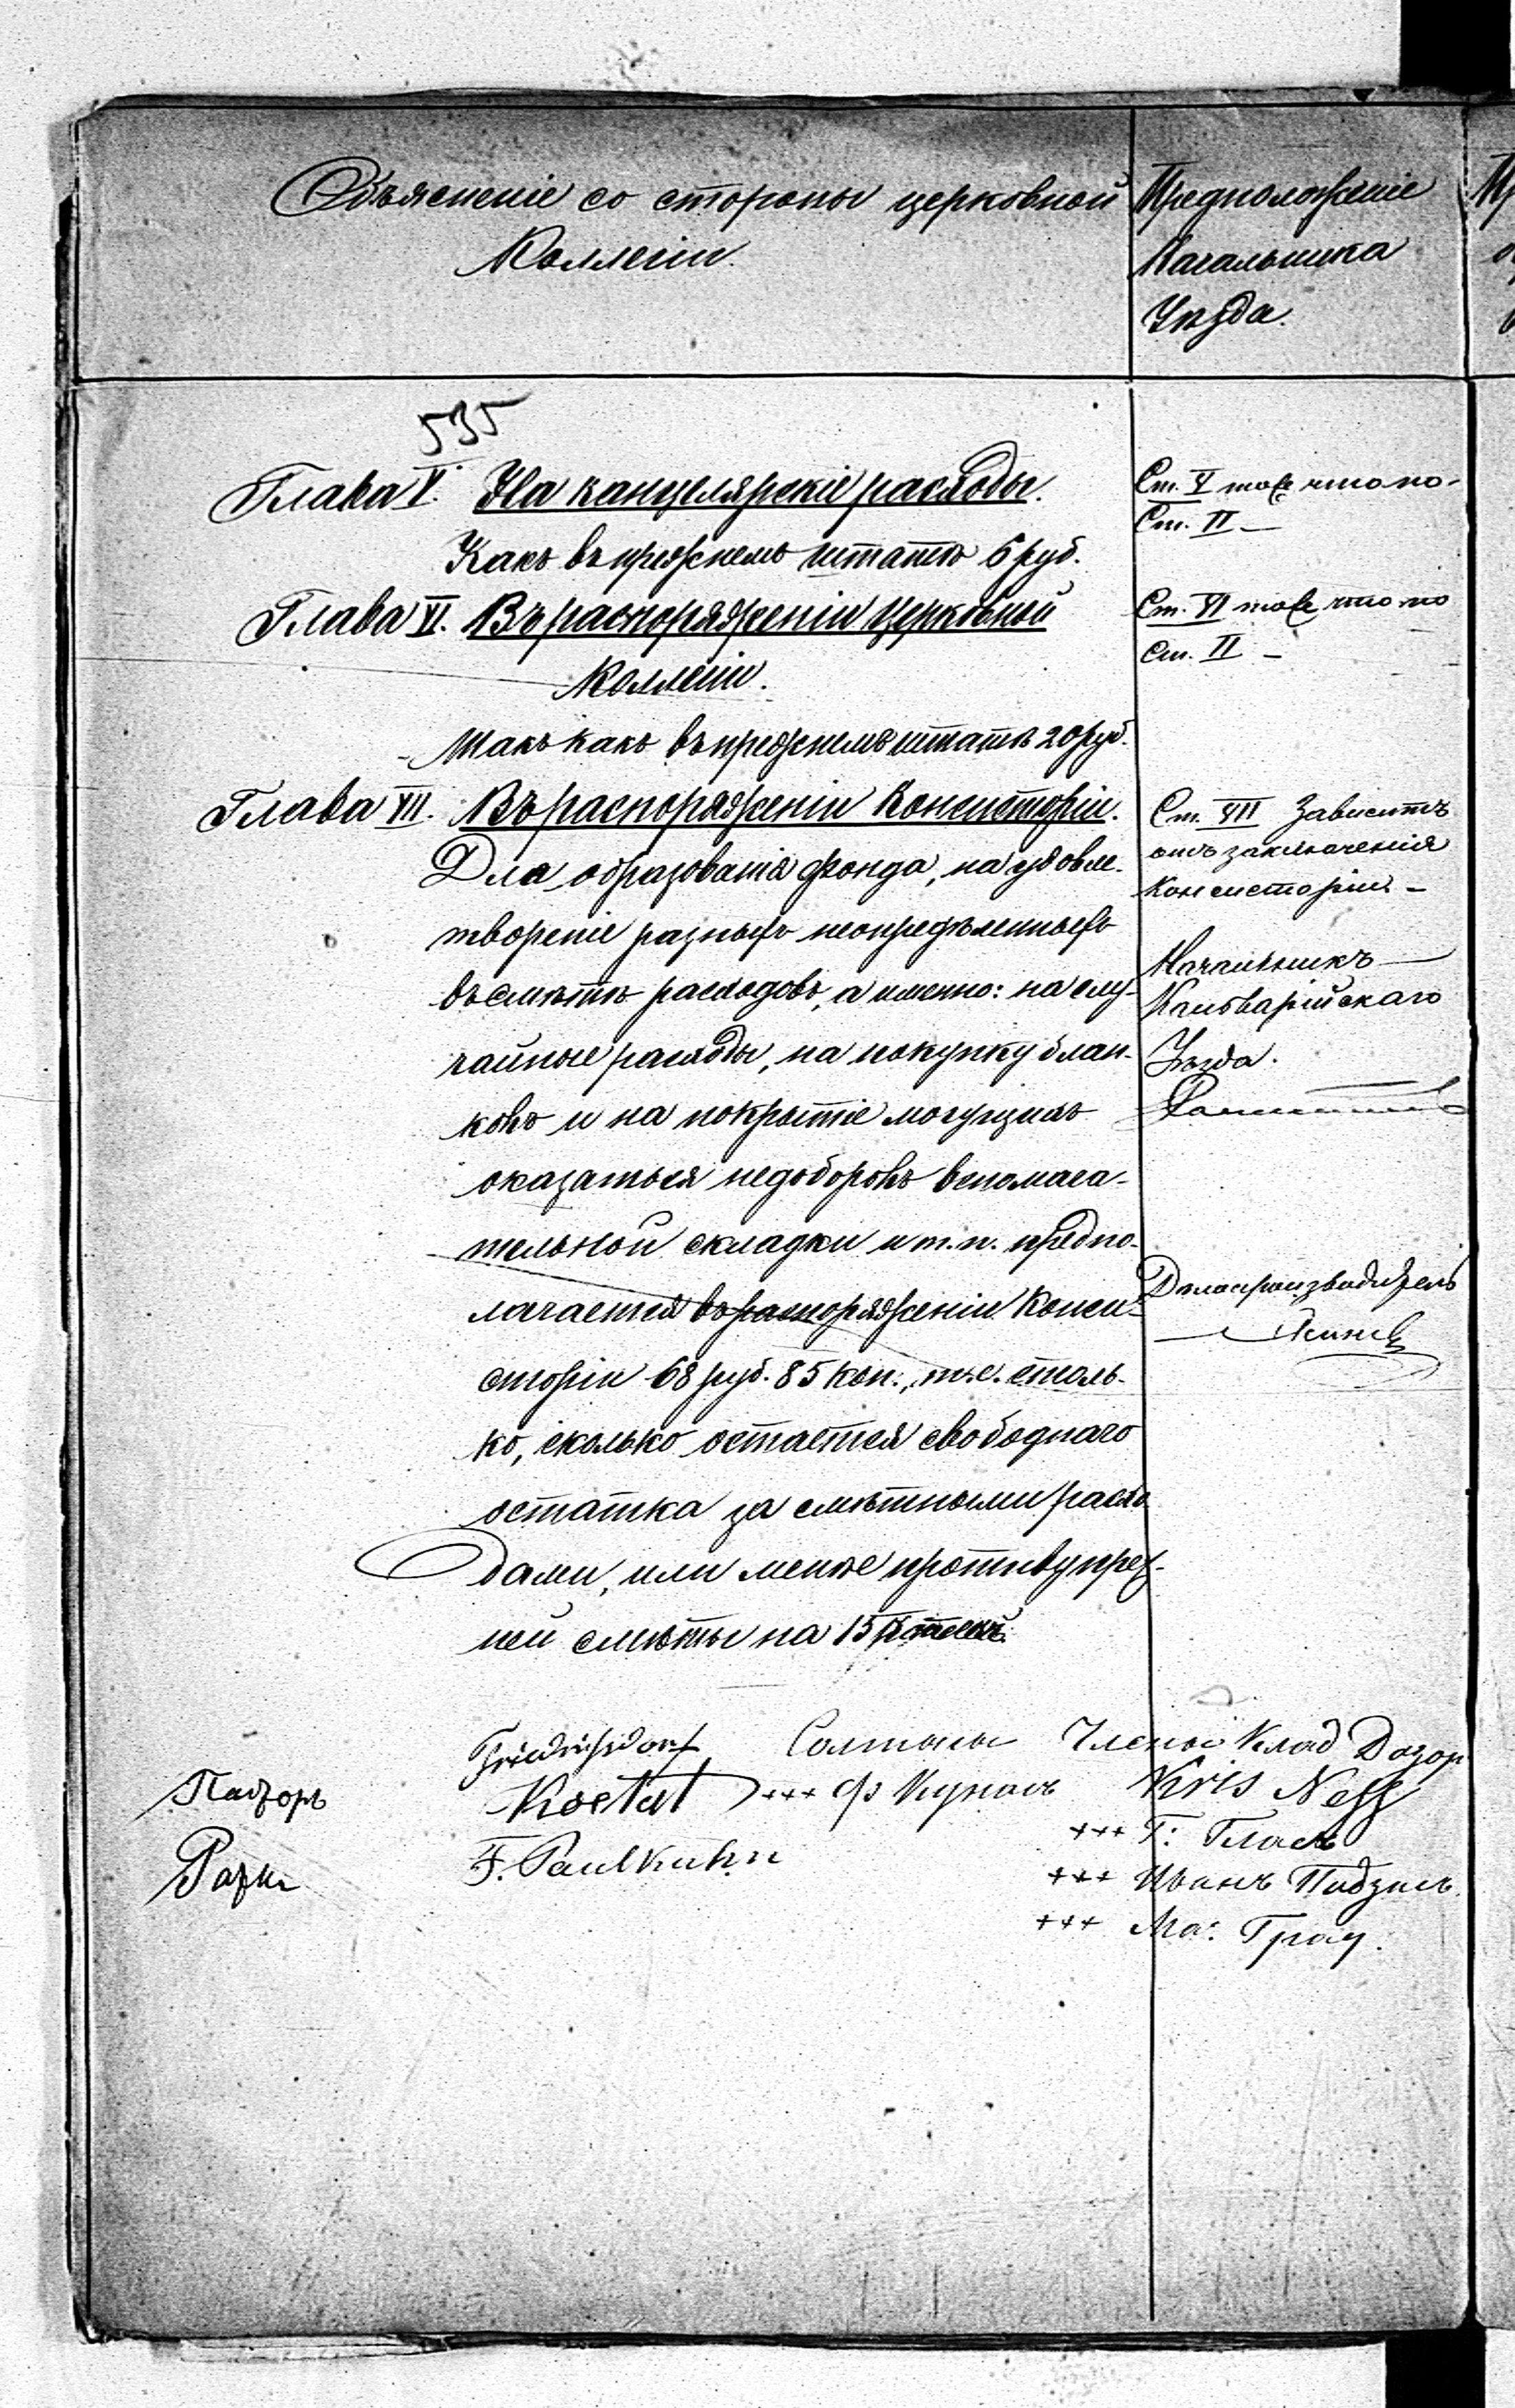 Объясненіе со стороны церковной
Коллегіи.
Предположеніе
Начальника
Уѣзда.
535
Глава V. На канцелярскіе расходы.
Какъ въ прежнемъ штатѣ 6 руб.
Глава VI. Въ распоряженіи Церковной
Коллегіи.
Такъ какъ въ прежнемъ штатѣ 20 руб.
Глава VII. Въ распоряженіи Консисторіи.
Для образованія фонда, на удовле-
твореніе разныхъ неопредѣленныхъ
въ смѣтѣ расходовъ, а именно: на слу-
чайные расходы, на покупку блан-
ковъ и на покрытіе могущихъ
оказаться недоборовъ вспомага-
тельной складки и т. п. предпо-
лагается въ распоряженіи Конси-
сторіи 68 руб. 85 коп., т. е. столь-
ко, сколько остается свободнаго
остатка за смѣтными расхо
дами, или менѣе противу преж-
ней смѣты на 15
Ст. V тоже что по-
Ст. II —
Ст. VI тоже что по
Ст. II —
Ст. VII Зависитъ
отъ заключенія
Консисторіи —
Начальникъ
Кальварійскаго
Уѣзда.
Дѣлопроизводитель
Пасторъ
Friedrichsdorf
F. Paulkuhn
Солтысы
+++ Ф
Члены Клад Дозор
Kris Neff
+++ Г:
+++ Иванъ
+++ Ма: Грау.